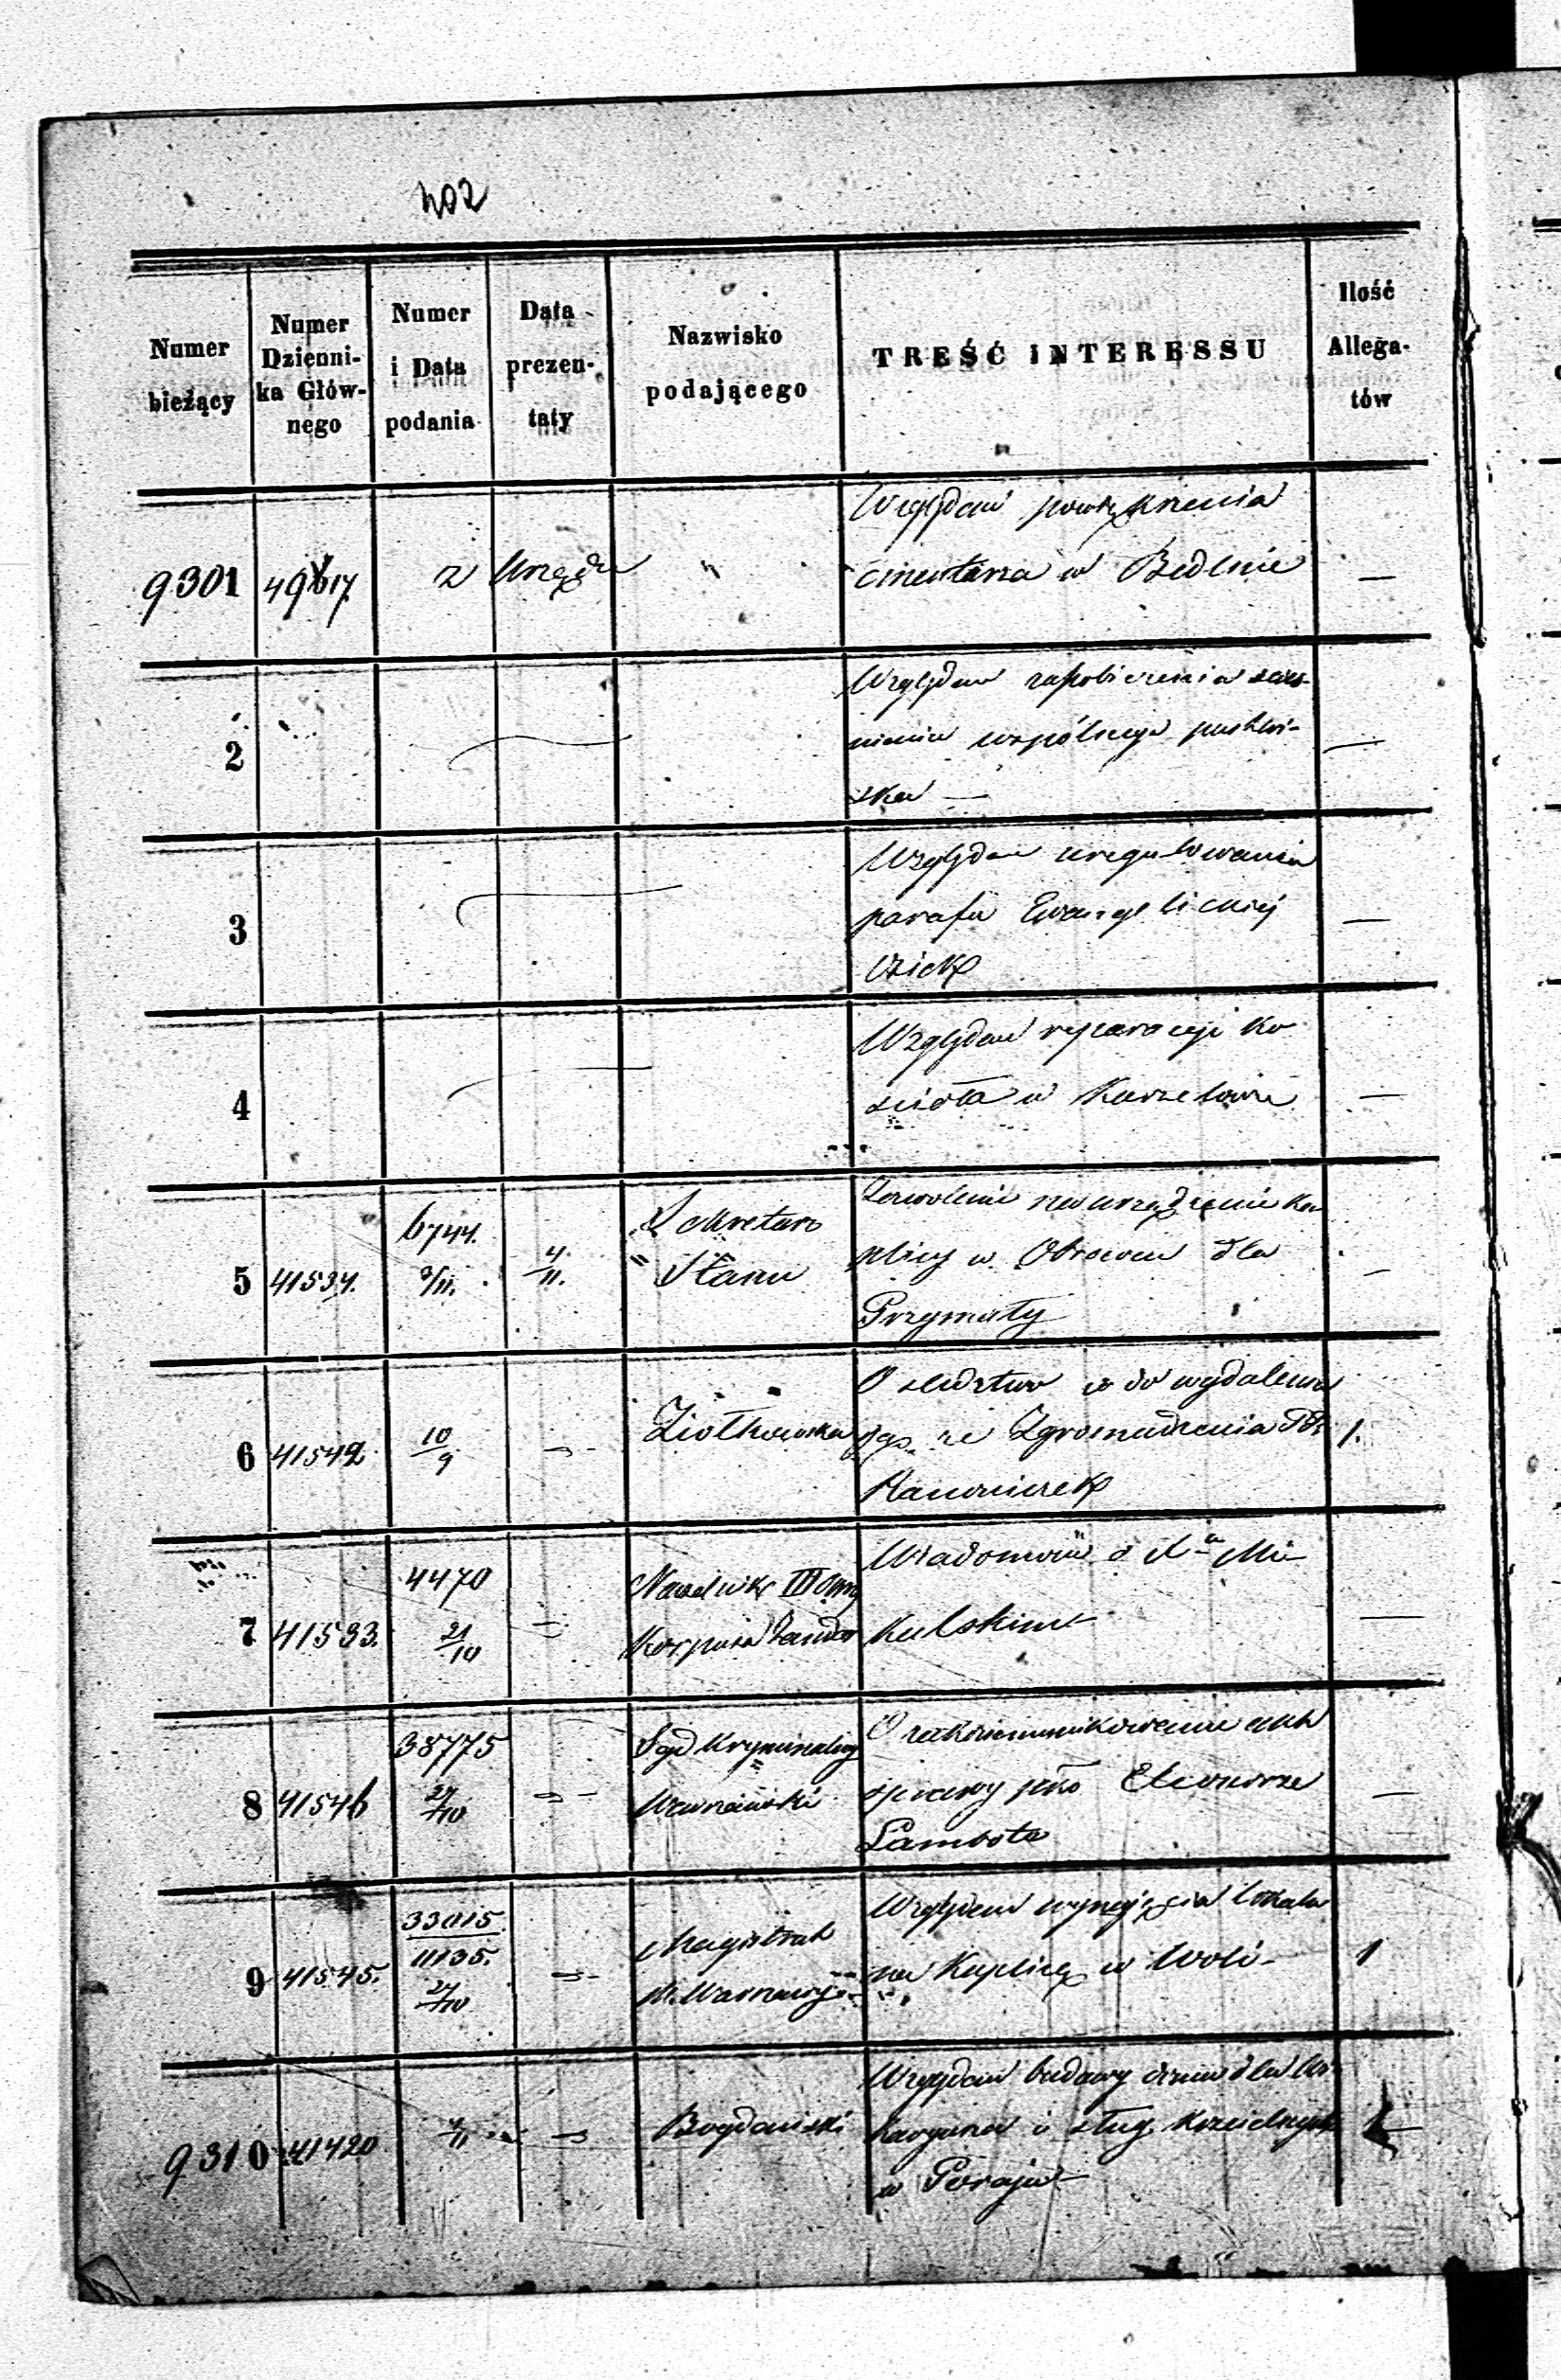 402
Numer bieżący
Numer Dzienni-ka Głów-nego
Numer i Data podania
Data prezen-taty
Nazwisko podającego
TREŚĆ INTERESSU
Ilość Allega-tów
9301 49617. z Urzędu "
Względem powiększenia
cmentarza w Bedlnie —
2
Względem zapobieżenia
wspólnego pastwi-
ska — —
3
Względem uregulowania
parafii Ewangelickiej
—
4
Względem reperacyi ko
ścioła w Kurzelowie —
5 41534. 6744. 3/11. 4/11.
Sekretarz
Stanu
Zezwolenie na urządzenie ka
plicy w Obrowie dla
Przymuły —
6 41542 10/9 -"-
Ziółkowska
O śledztwo co do wydalenia
jej ze Zgromadzenia PP.
Kanoniczek 1.
7 41533. 4470 21/10 -"-
Naczelnik III Okręg
Korpusu Żandar
Wiadomość o X-u Mi-
kulskim — —
8 41546 38775 27/10 -"-
Sąd Kryminalny
Warszawski
O zakommunikowanie akt
sprawy pko Eleonorze
Lambota —
9 41545. 33015/11135. 27/10 -"-
Magistrat
M. Warszawy
Względem wynajęcia lokalu
na Kaplicę w Woli — 1
9310 41420 4/11 -"-
Bogdański
Względem budowy domu dla Wi-
karyusza i sług kościelnych
w Poraju — 1